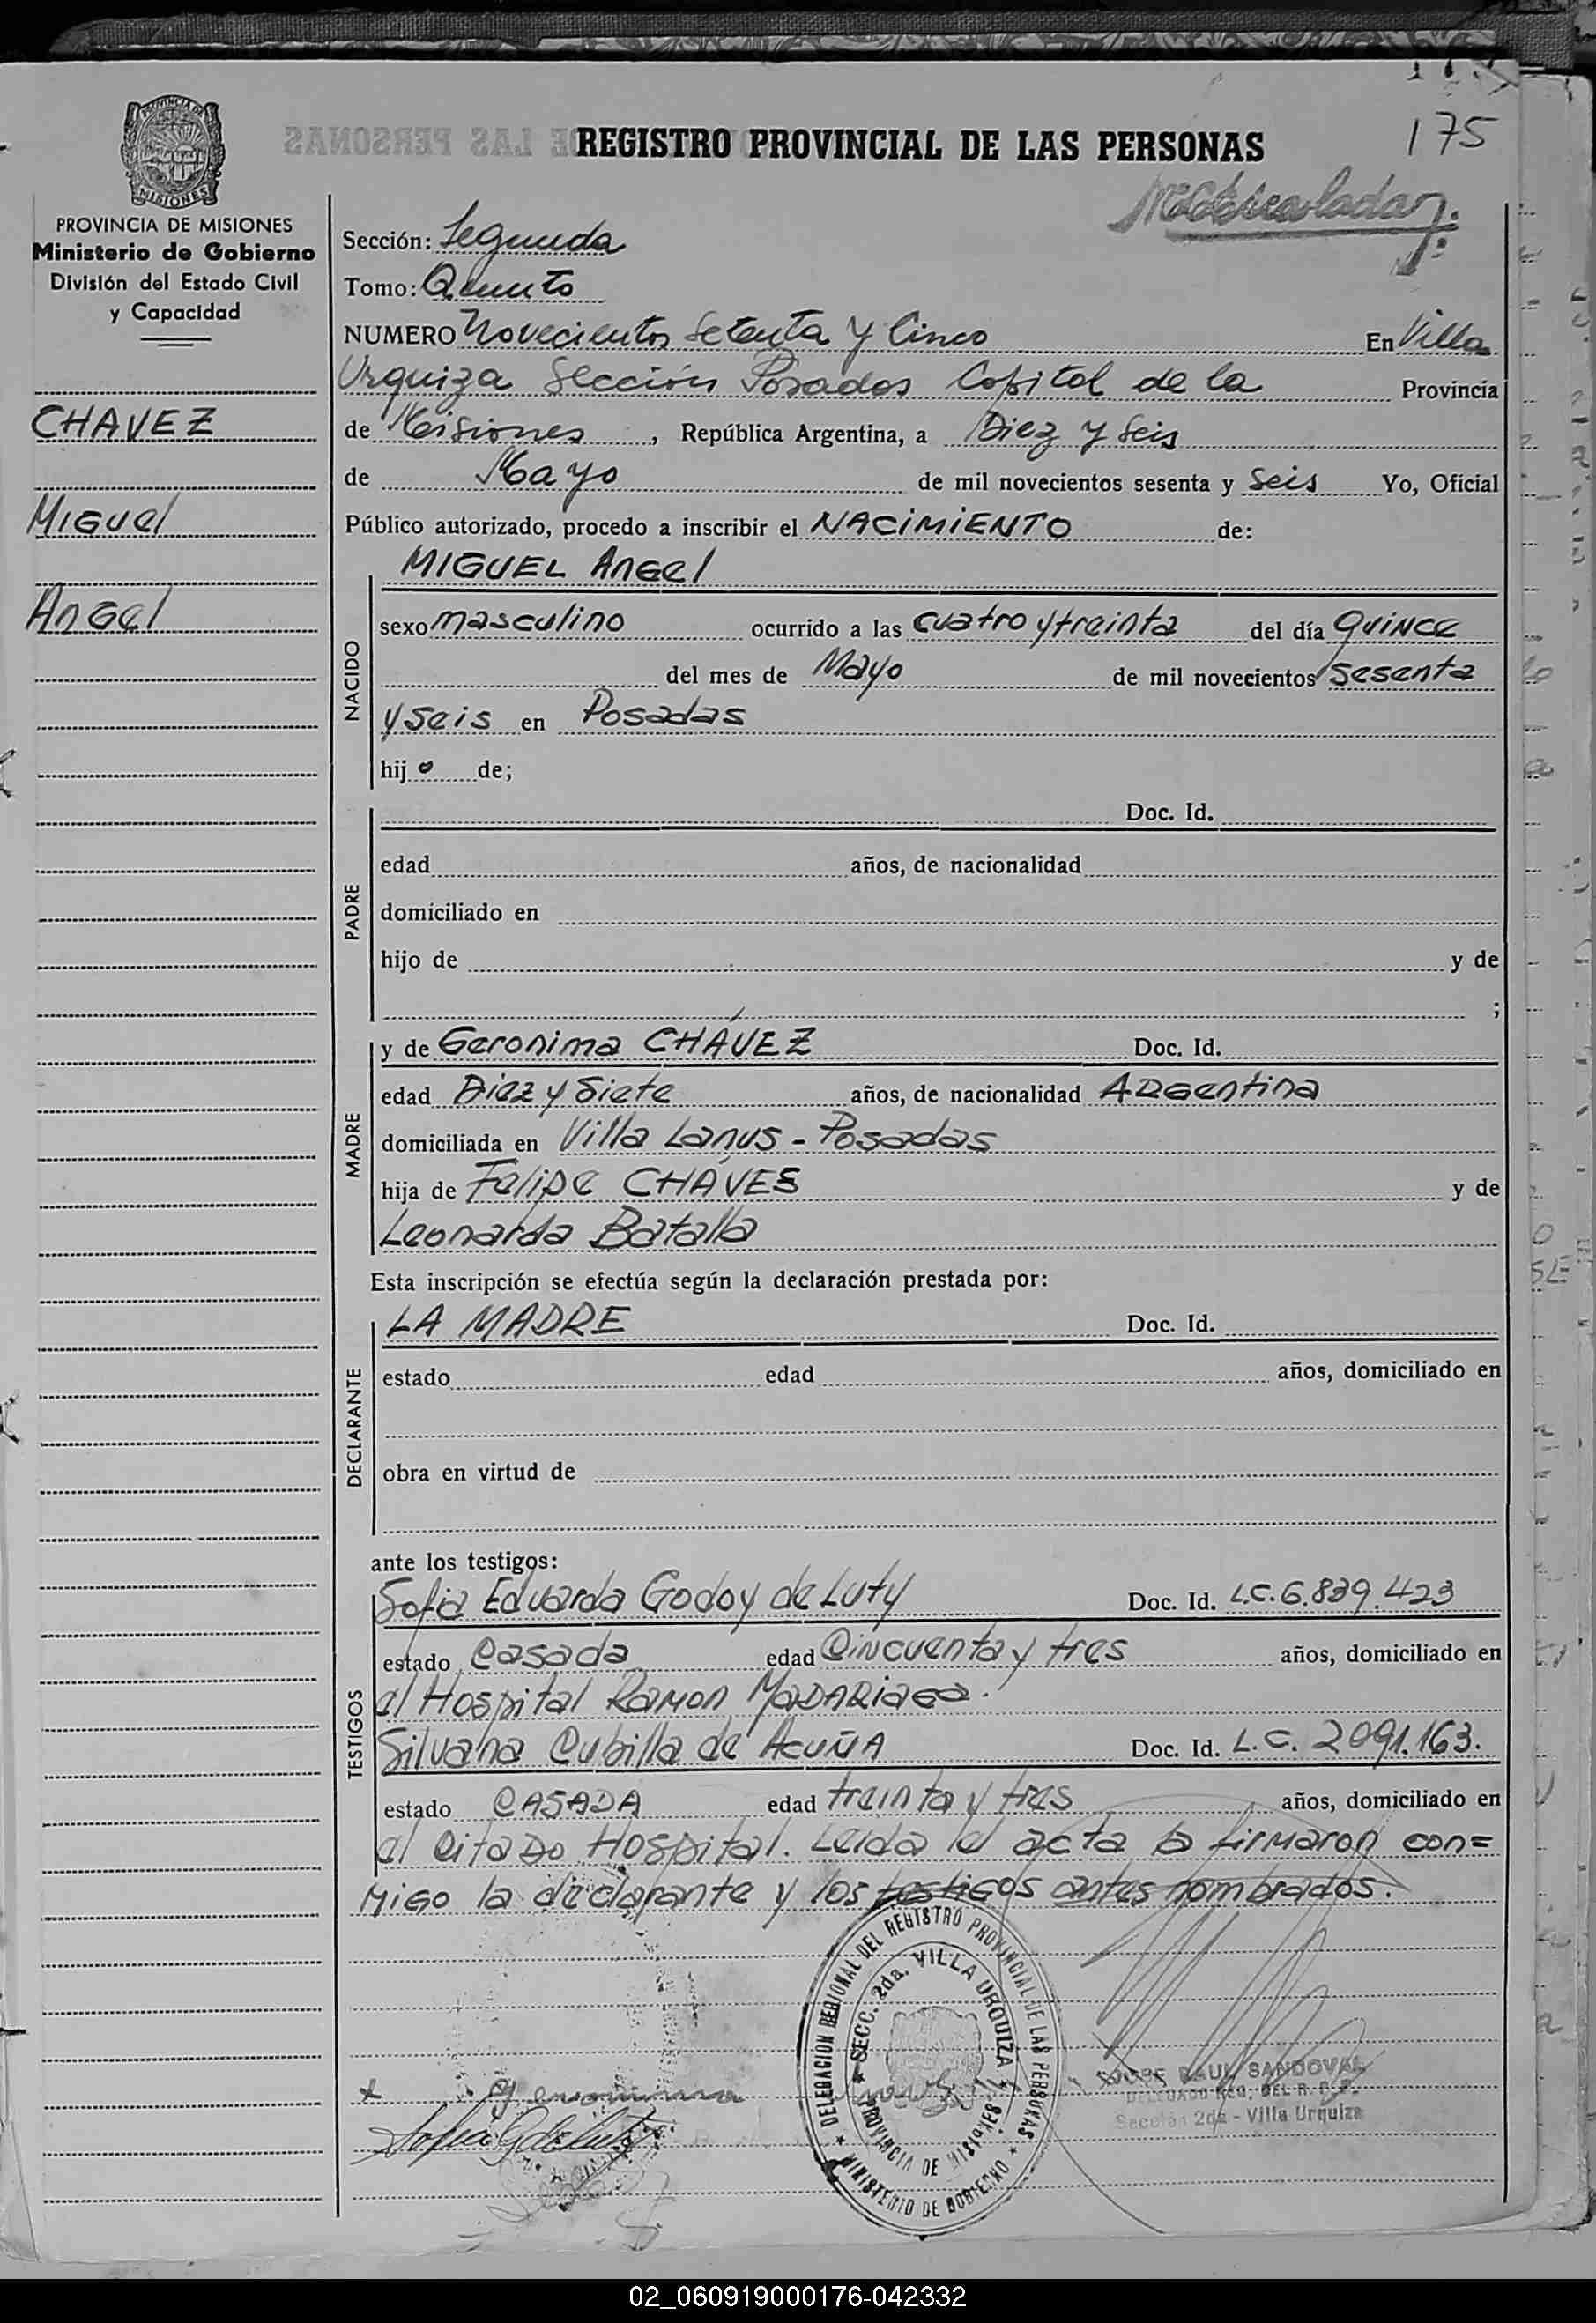 175
REGISTRO PROVINCIAL DE LAS PERSONAS
PROVINCIA DE MISIONES
Ministerio de Gobierno
División del Estado Civil
y Capacidad
CHAVEZ
Miguel
Angel
Sección: Segunda
Tomo: Quinto
NUMERO Novecientos Setenta y Cinco En Villa
Urquiza Sección Posadas Capital de la Provincia
de Misiones, República Argentina, a Diez y Seis
de Mayo de mil novecientos sesenta y Seis Yo, Oficial
Público autorizado, procedo a inscribir el NACIMIENTO de:
MIGUEL Angel
NACIDO
sexo masculino ocurrido a las cuatro y treinta del día QUINCE
del mes de Mayo de mil novecientos sesenta
y seis en Posadas
hijo de;
PADRE
Doc. Id.
edad años, de nacionalidad
domiciliado en
hijo de y de
;
MADRE
y de Geronima CHÁVEZ Doc. Id.
edad Diez y Siete años, de nacionalidad ARgentina
domiciliada en Villa Lanus - Posadas
hija de Felipe CHÁVES y de
Leonarda Batalla
Esta inscripción se efectúa según la declaración prestada por:
DECLARANTE
LA MADRE Doc. Id.
estado edad años, domiciliado en
obra en virtud de
ante los testigos:
TESTIGOS
Sofia Eduarda Godoy de Luty Doc. Id. L.C. 6.839.423
estado Casada edad Cincuenta y tres años, domiciliado en
el Hospital Ramon MADARiaga.
Silvana Cubilla de Acuña Doc. Id. L.C. 2091.163.
estado CASADA edad treinta y tres años, domiciliado en
el citado Hospital. Leida el acta la firmaron con=
migo la declarante y los testigos antes nombrados.
DELEGACION REGIONAL DEL REGISTRO PROVINCIAL DE LAS PERSONAS
MINISTERIO DE GOBIERNO
SECC. 2da. VILLA URQUIZA
PROVINCIA DE MISIONES
RAUL SANDOVAL
DELEGADO REG. DEL R. P. P.
Sección 2da - Villa Urquiza
Geronima
Sofia G de Luty
02_060919000176-042332